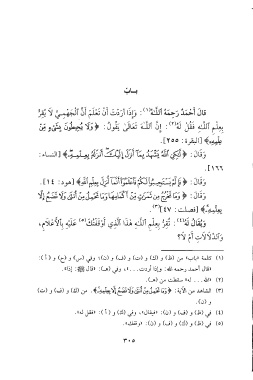 بـابٌ
قالَ أَحْمَدُ رَحِمَهُ اللَّـهُ(١): وَإِذَا أَرَدْتَ أَنْ تَعْلَمَ أَنَّ الْجَهْمِيَّ لَا يُقِرُّ
بِعِلْمِ اللَّـهِ فَقُلْ لَهُ(٢): إِنَّ اللَّـهَ تَعَالَى يَقُولُ: ﴿ وَلَا يُحِيطُونَ بِشَىْءٍ مِّنْ
عِلْمِهِ﴾ [البقرة: ٢٥٥].
وَقَالَ: ﴿لَّٰكِنِ اللَّهُ يَشْهَدُ بِمَآ أَنزَلَ إِلَيْكَ أَنزَلَهُ بِعِلْمِهِ﴾ [النساء:
١٦٦].
وَقَالَ: ﴿فَإِلَّمْ يَسْتَجِيبُوا لَكُمْ فَاعْلَمُوٓا أَنَّمَآ أُنزِلَ بِعِلْمِ اللَّهِ﴾ [هود: ١٤].
وَقَالَ: ﴿ وَمَا تَخْرُجُ مِن ثَمَرَٰتٍ مِّنْ أَكْمَامِهَا وَمَا تَحْمِلُ مِنْ أُنثَىٰ وَلَا تَضَعُ إِلَّا
بِعِلْمِهِ﴾ [فصلت: ٤٧](٣).
وَيُقَالُ لَهُ(٤): تُقِرُّ بِعِلْمِ اللَّـهِ هَذَا الَّذِي أَوْقَفْتُكَ(٥) عَلَيْهِ بِالْأَعْلَامِ،
وَالدَّلَالَاتِ أَمْ لَا؟
(١) كلمة «باب» من (ظ) و (ك) و (ت) و (ف) و (ن)؛ وفي (س) و (ح) و (أ):
«قال أحمد رحمه الله: وإذا أردت...»، وفي (هـ): «قال ﷺ: إذا».
(٢) «الله... له» سقطت من (هـ).
(٣) الشاهد من الآية: ﴿ وَمَا تَحْمِلُ مِنْ أُنثَىٰ وَلَا تَضَعُ إِلَّا بِعِلْمِهِ﴾. من (ك) و (ف) و (ت)
و (ن).
(٤) في (ظ) و (ف) و (ن): «فيقال»، وفي (ك) و (أ): «فقل له».
(٥) في (ظ) و (ك) و (ف) و (ن): «وقفتك».
٣٠٥